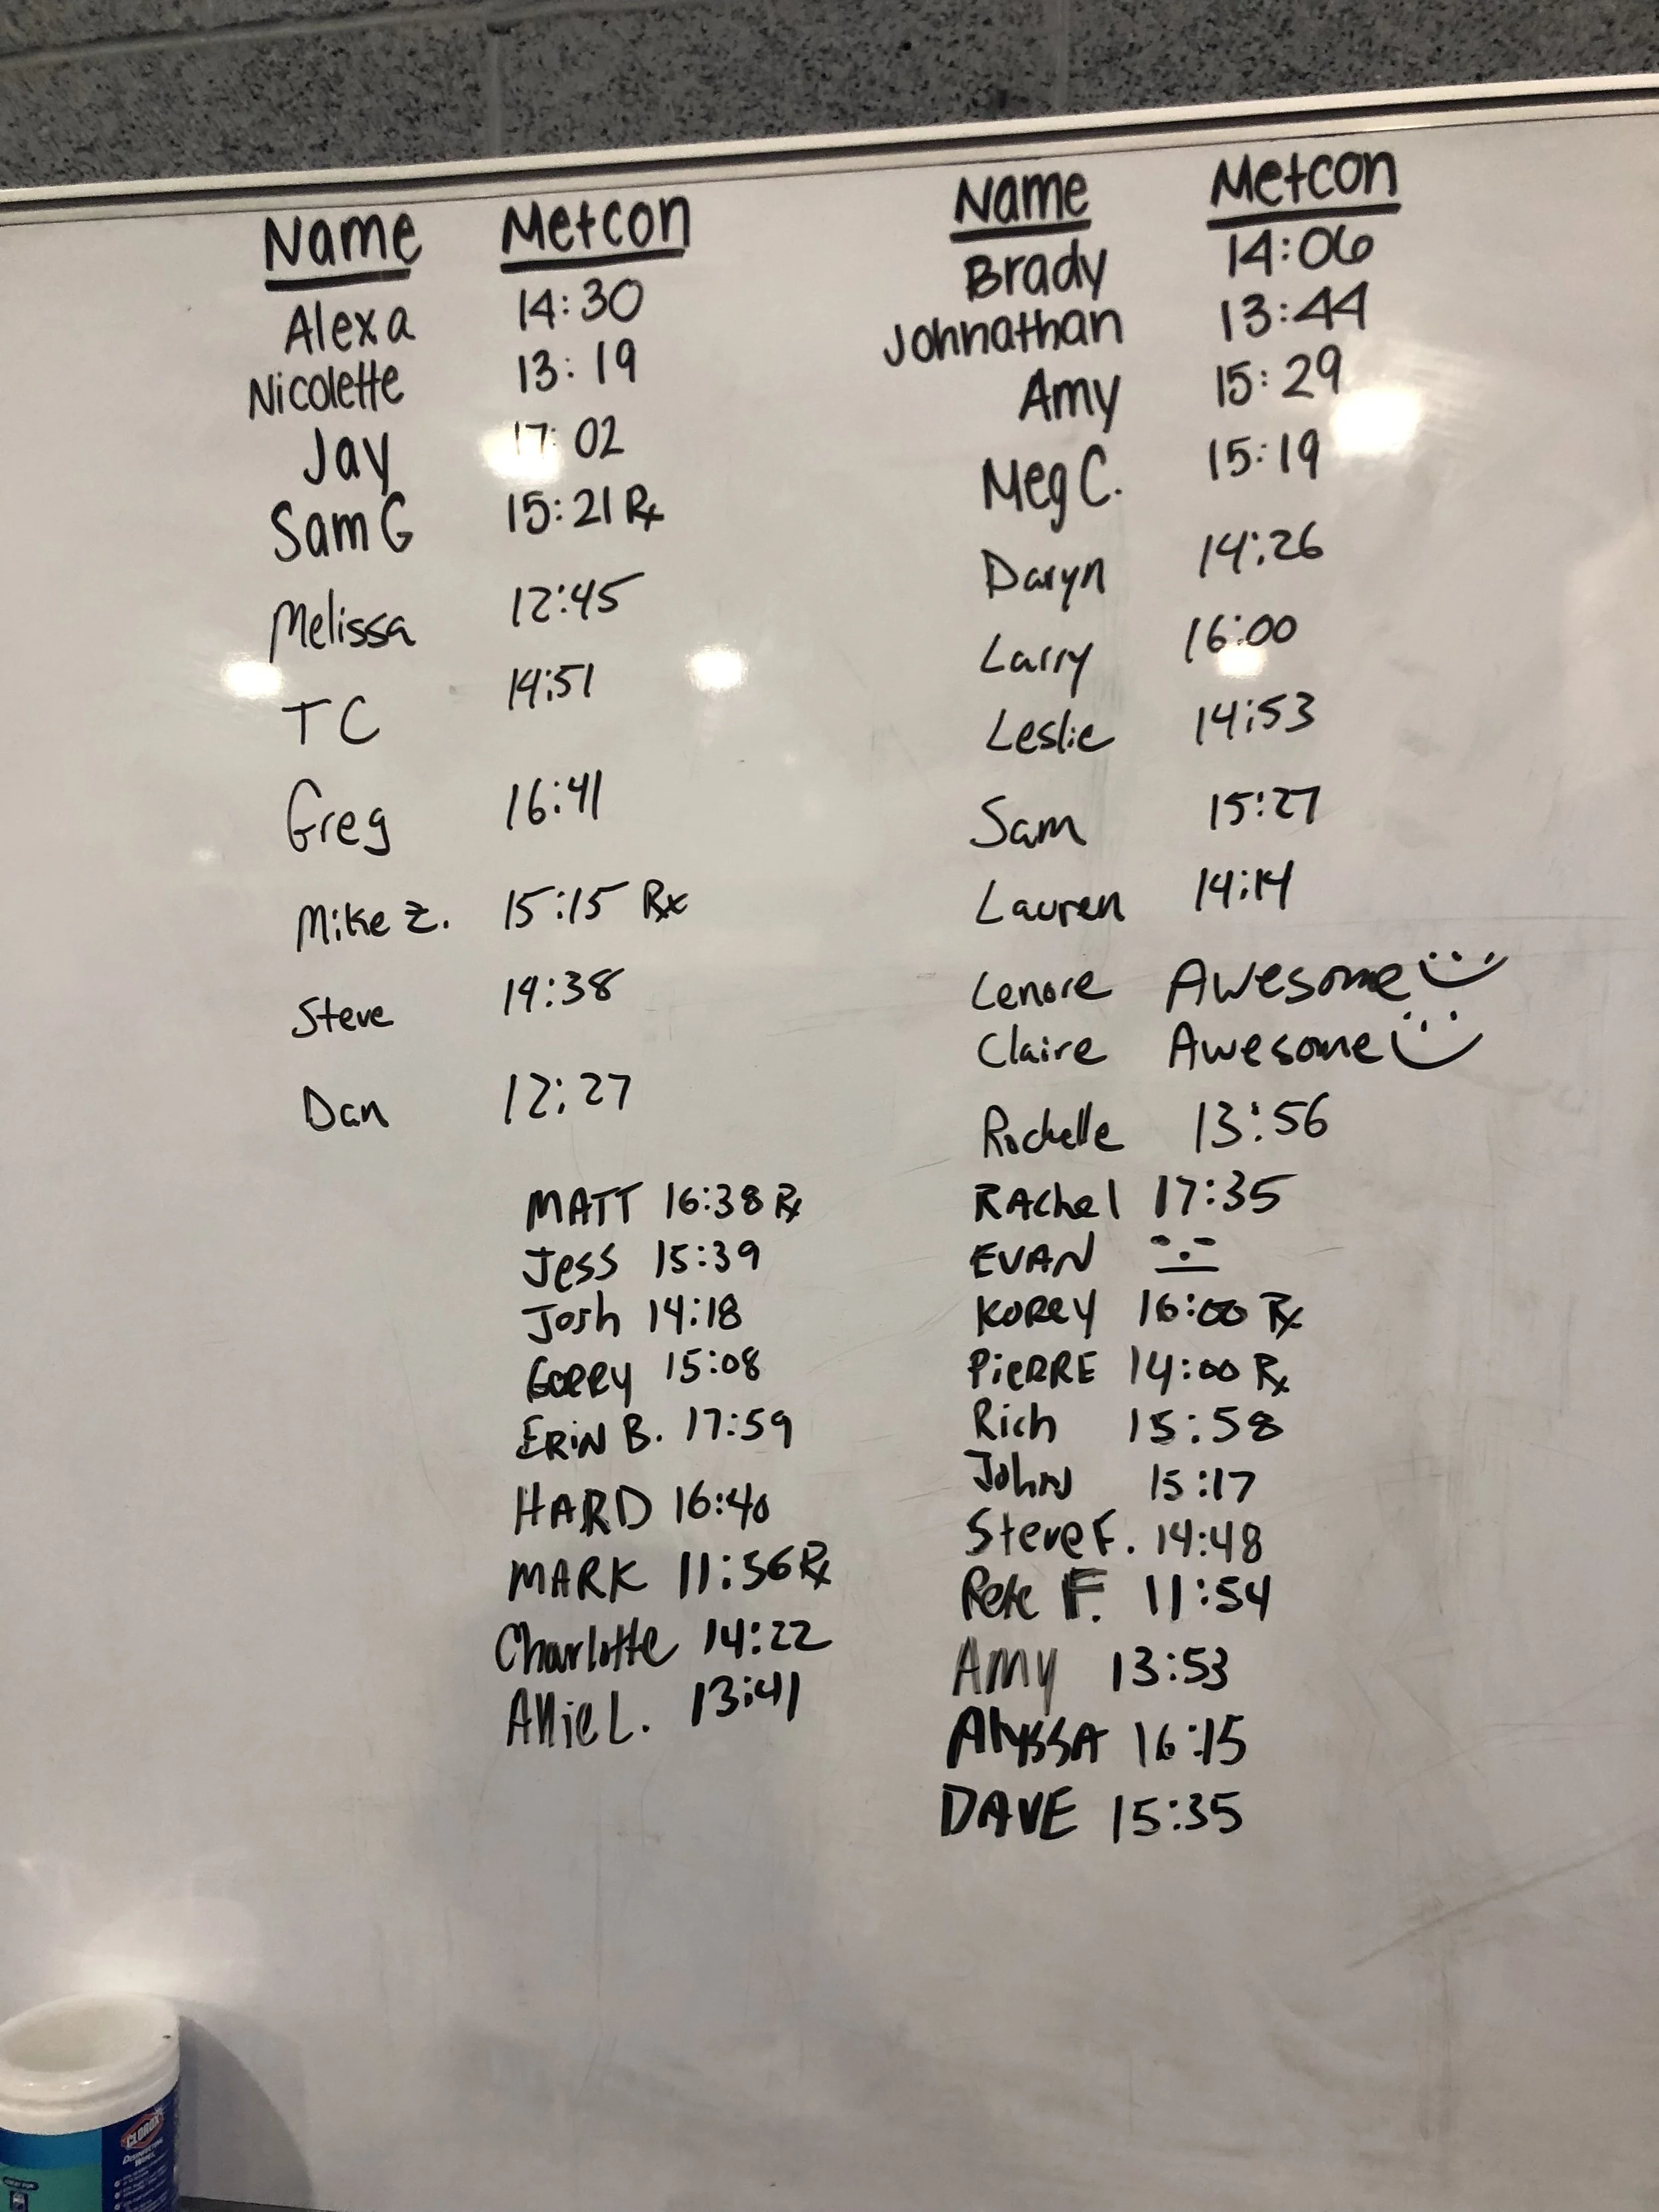 Name Metcon
Alexa 14:30
Nicolette 13:19
Jay 17:02
Sam G 15:21 Rx
Melissa 12:45
TC 14:51
Greg 16:41
Mike Z. 15:15 Rx
Steve 14:38
Dan 12:27
MATT 16:38 Rx
Jess 15:39
Josh 14:18
GORRY 15:08
ERIN B. 17:59
HARD 16:40
MARK 11:56 Rx
Charlotte 14:22
Allie L. 13:41
Name Metcon
Brady 14:06
Johnathan 13:44
Amy 15:29
Meg C. 15:19
Daryn 14:26
Larry 16:00
Leslie 14:53
Sam 15:27
Lauren 14:14
Lenore Awesome
Claire Awesome
Rochelle 13:56
RAchel 17:35
EVAN
KOREY 16:00 Rx
PiERRE 14:00 Rx
Rich 15:58
JohN 15:17
Steve F. 14:48
Pete F. 11:54
Amy 13:53
AlYSSA 16:15
DAVE 15:35
CLOROX
DISINFECTING
WIPES